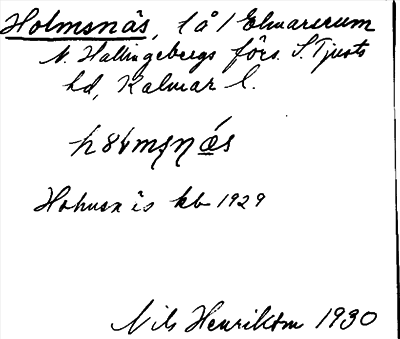 Holmsnäs, t å 1 Elmarerum
N. Hallingebergs förs. S. Tjusts
hd, Kalmar l.
Holmsnäs kb 1929
Nils Henrikson 1930